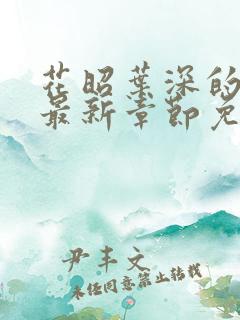 花昭葉深的
最新章節免
尹丰文
未经同意禁止转载